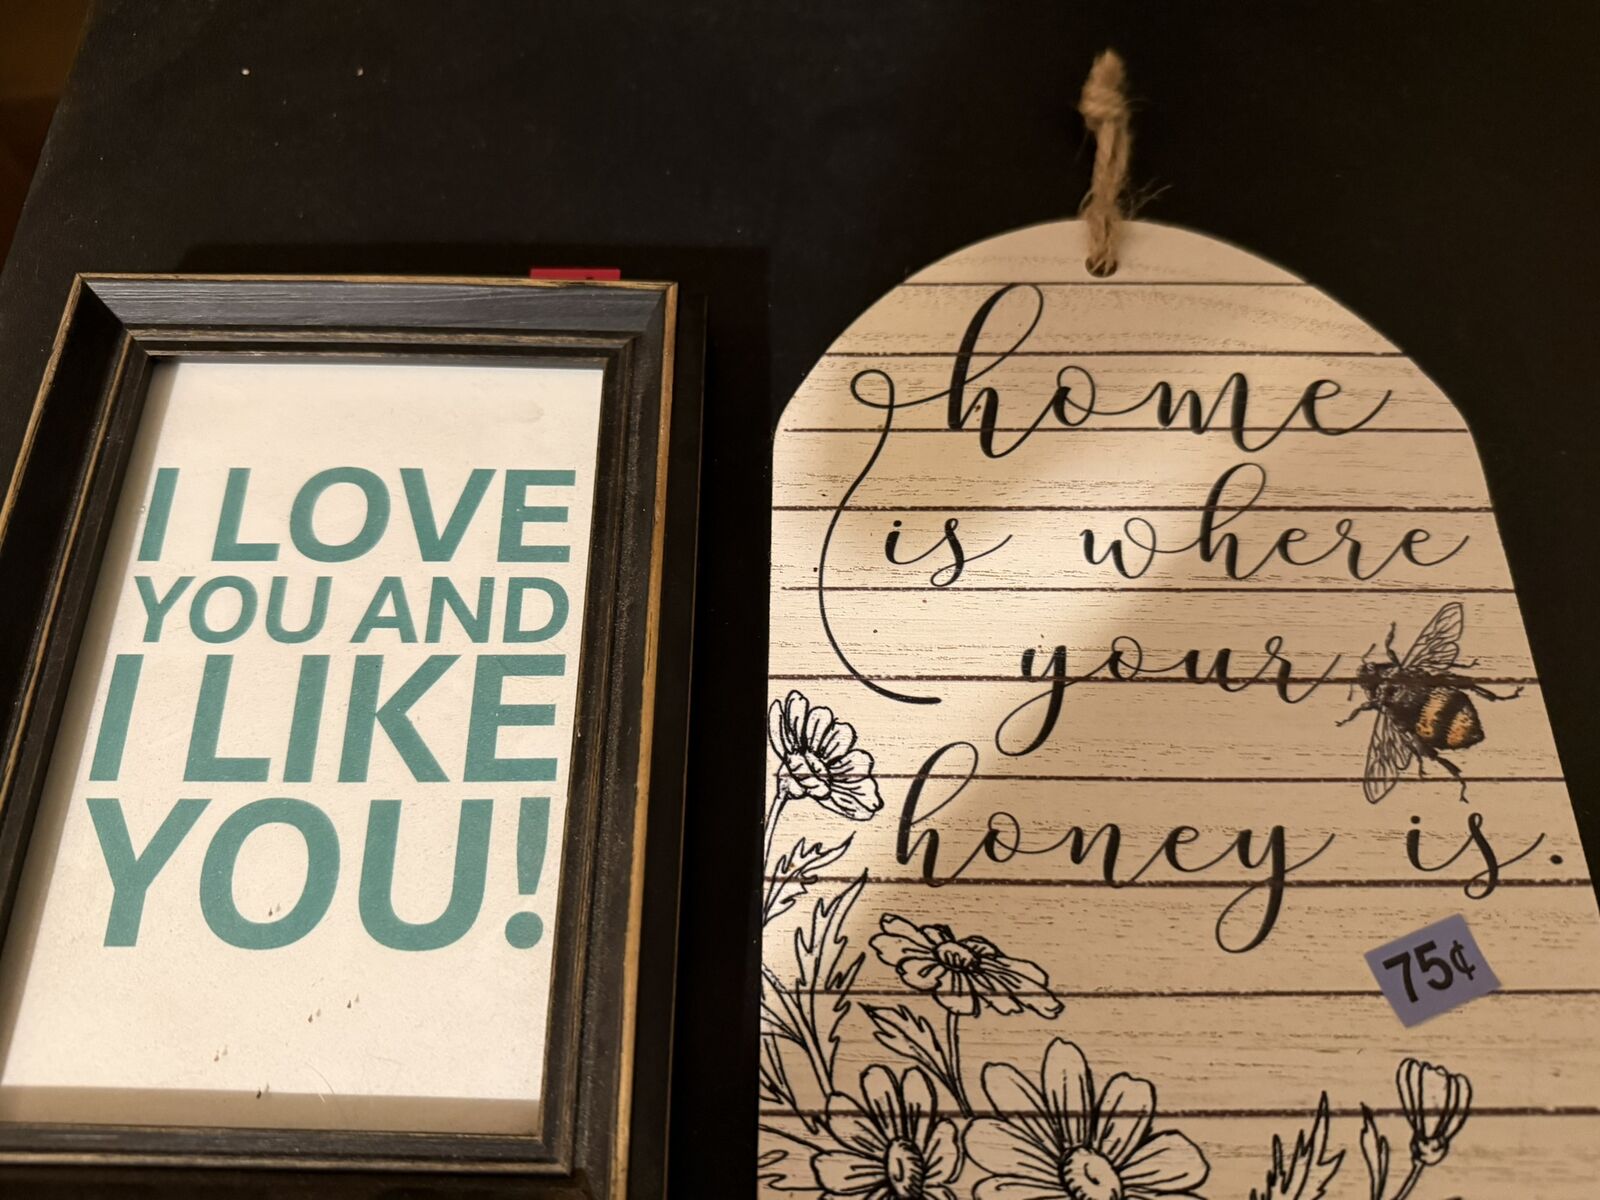 I LOVE
YOU AND
I LIKE
YOU!
home
is where
your
honey is.
75¢